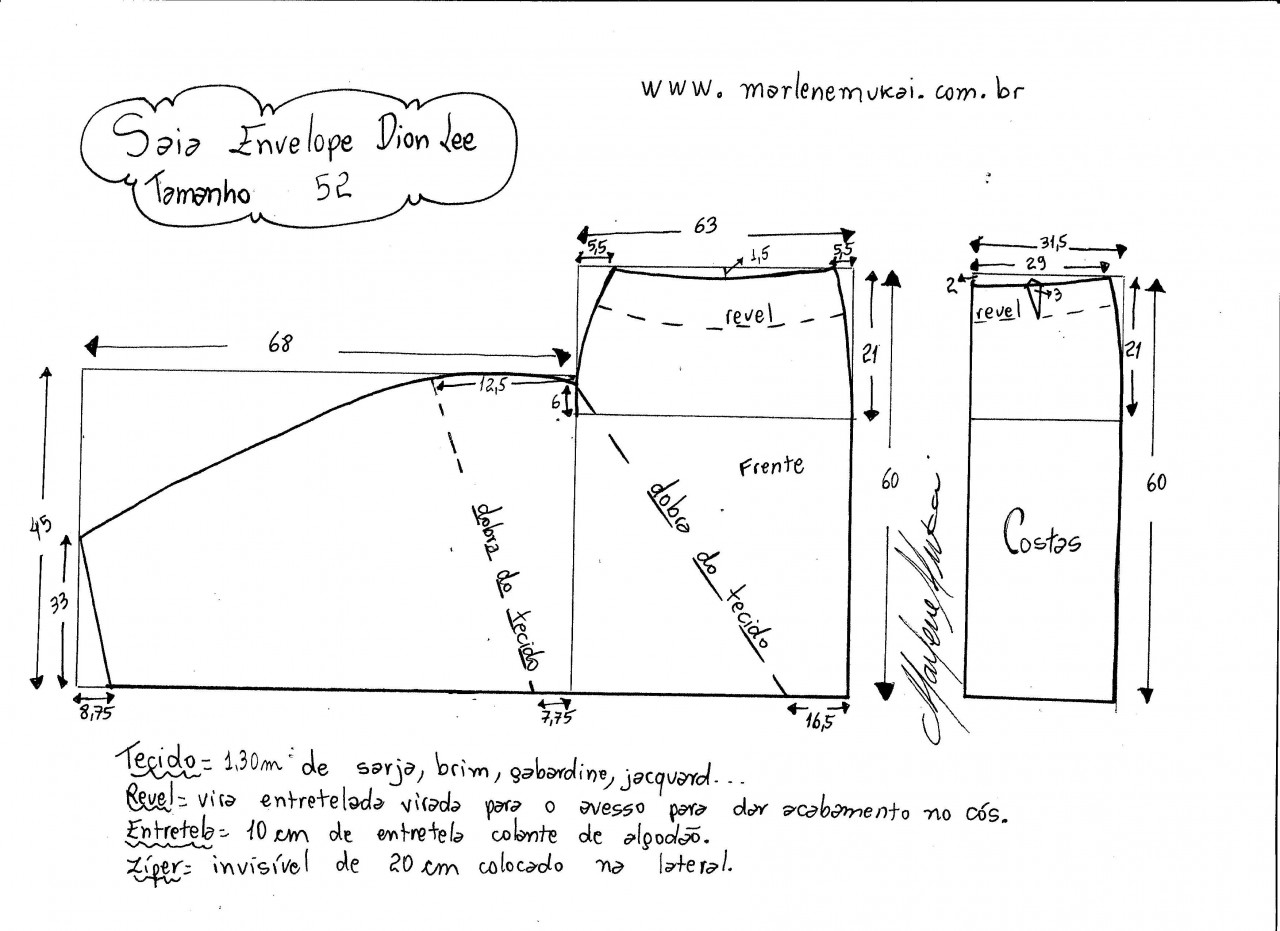 www.marlenemukai.com.br
Saia Envelope Dion Lee
Tamanho 52
63
5,5
1,5
5,5
revel
31,5
29
2
3
revel
21
21
68
12,5
6
45
33
Frente
60
60
Costas
dobra do tecido
dobra do tecido
Marlene Mukai
8,75
7,75
16,5
Tecido = 1,30m de sarja, brim, gabardine, jacquard...
Revel = vira entretelada virada para o avesso para dar acabamento no cós.
Entretela = 10 cm de entretela colante de algodão.
Zíper = invisível de 20 cm colocado na lateral.